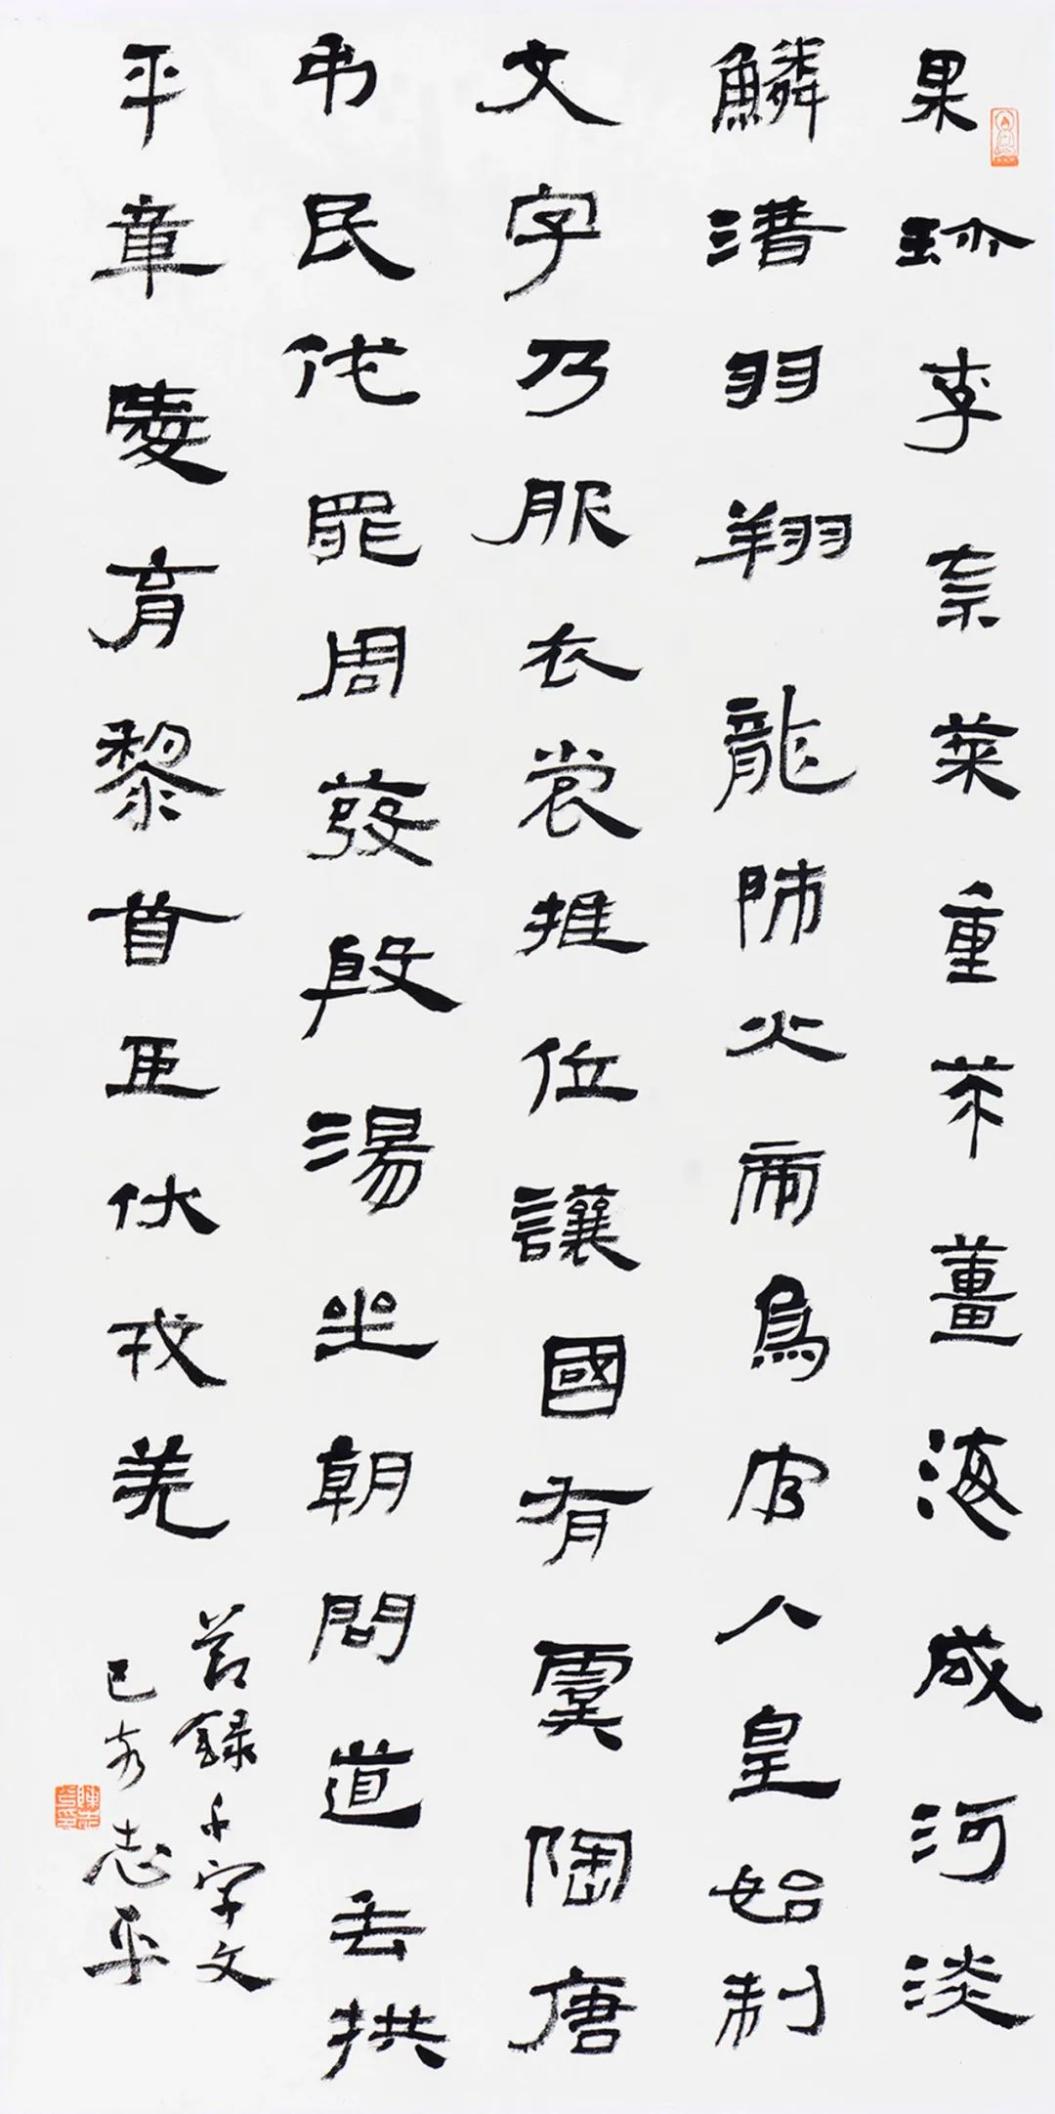 果珎李柰菜重芥薑海咸河淡
鱗潛羽翔龍師火帝鳥官人皇始制
文字乃服衣裳推位讓國有虞陶唐
弔民伐罪周發殷湯坐朝問道垂拱
平章愛育黎首臣伏戎羌
節錄千字文
己亥志平